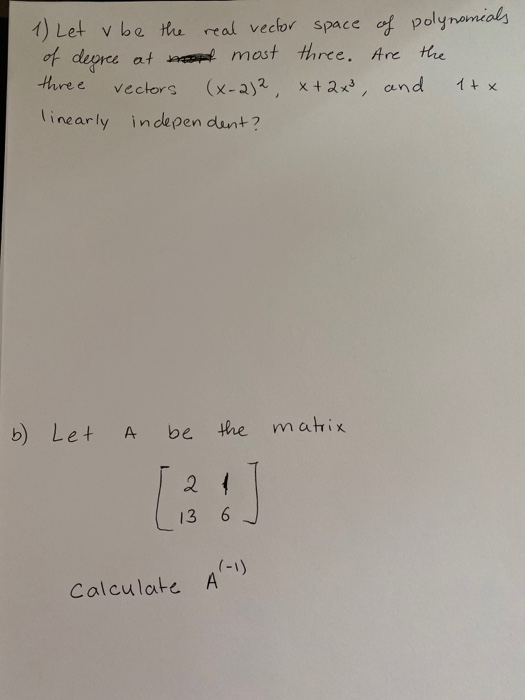 1) Let v be the real vector space of polynomials
of degree at most three. Are the
three vectors (x-2)², x+2x³, and 1+x
linearly independent?
b) Let A be the matrix
[ 2 1
13 6 ]
Calculate A⁽⁻¹⁾